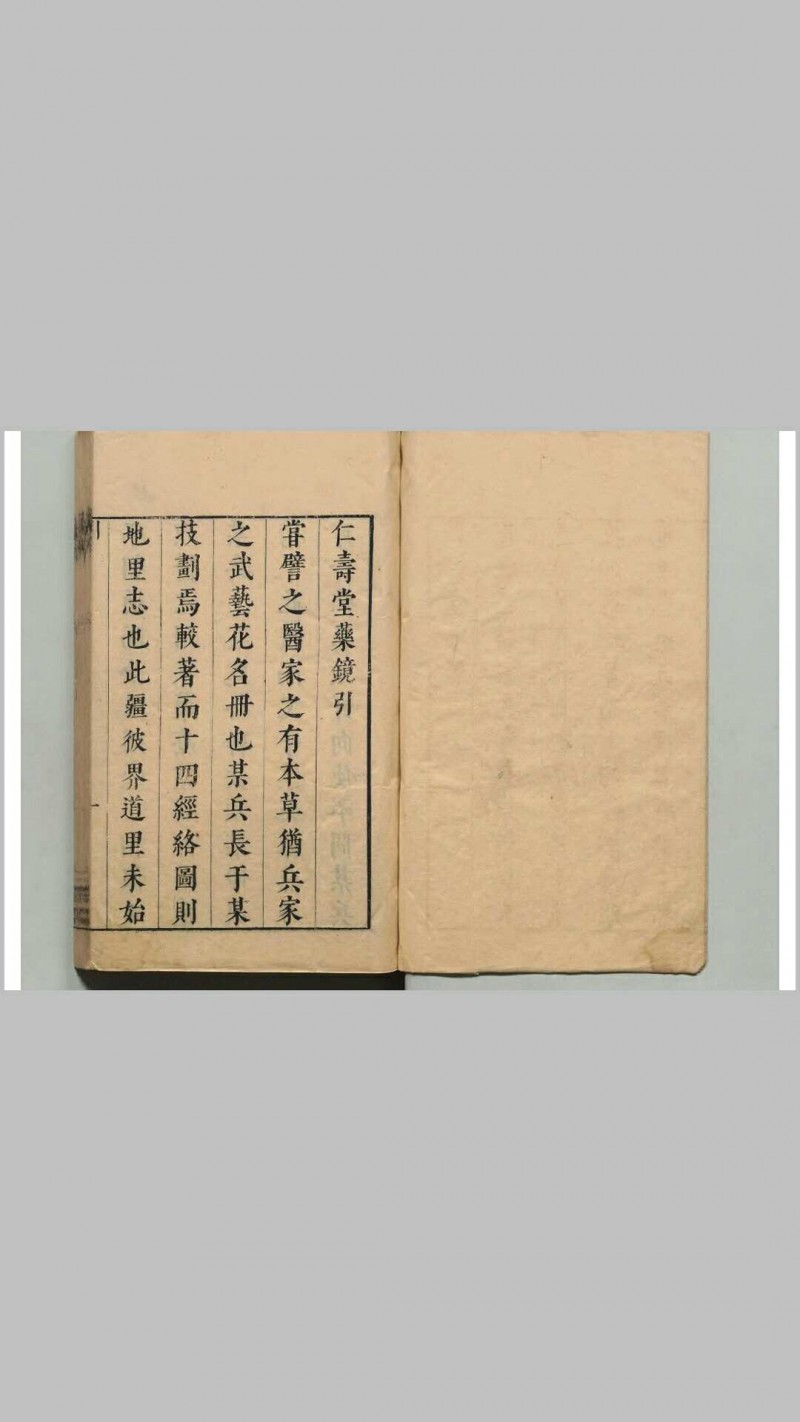 仁壽堂藥鏡引
甞譬之醫家之有本草猶兵家
之武藝花名冊也某兵長于某
技劃焉較著而十四經絡圖則
地里志也此疆彼界道里未始